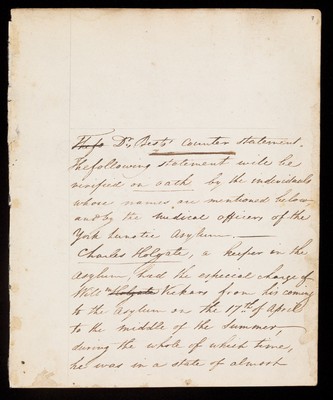 The fo Dr. Best's Counter statement.
The following statement will be
verified on oath by the individuals
whose names are mentioned below
and by the medical officers of the
York Lunatic Asylum.—
Charles Holgate, a keeper in the
Asylum, had the especial charge of
Willm Holgate Vickars from his coming
to the Asylum on the 17th of April
to the middle of the summer,
during the whole of which time,
he was in a state of almost